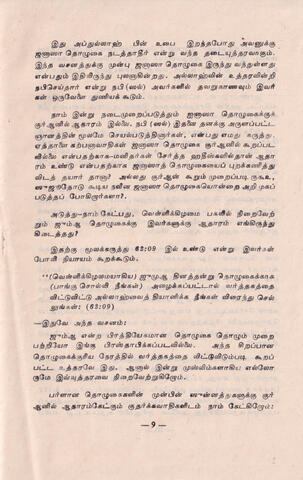 இது அப்துல்லாஹ் பின் உபை இறந்தபோது அவனுக்கு
ஜனாஸா தொழுகை நடத்தாதீர் என்று வந்த தடையுத்தரவாகும்.
இந்த வசனத்துக்கு முன்பு ஜனாஸா தொழுகை இருந்து வந்துள்ளது
என்பதும் இதிலிருந்து புலனாகின்றது. அல்லாஹ்வின் உத்தரவின்றி
நபி(ஸல்) அவர்களில் தவறுகாணவும் இவர்
கள் ஒருவேளை துணியக் கூடும்.
நாம் இன்று நடைமுறைபடுத்தும் ஜனாஸா தொழுகைக்குக்
குர்ஆனில் ஆதாரம் இல்லை. நபி (ஸல்) இதனை தனக்கு அருளப்பட்ட
ஞானத்தின் மூலமே செயல்படுத்தினார்கள், என்பது எமது கருத்து.
ஏத்தாளை கற்பனாவாதிகள் ஜனாஸா தொழுகை குர்ஆனில் கூறப்பட
வில்லை என்பதற்காக-மனிதர்கள் சேர்த்த ஹதீஸ்களில்தான் ஆதா
ரம் உண்டு என்பதற்காக ஜனாஸாத் தொழுகையைப் புறக்கணித்து
விடத் தயார் தானா? அல்லது குர்ஆன் கூறும் முறைப்படி ருகூஉ,
ஸுஜூதோடு கூடிய நவீன ஜனாஸா தொழுகையொன்றை அறிமுகப்
படுத்தப் போகிறார்களா?
அடுத்து-நாம் கேட்பது, வெள்ளிக்கிழமை பகலில் நிறைவேற்
றும் ஜும்ஆ தொழுகைக்கு இவர்களுக்கு ஆதாரம் எங்கிருந்து
கிடைத்தது?
இதற்கு மூலக்கருத்து 62:09 இல் உண்டு என்று இவர்கள்
போலி நியாயம் கூறக்கூடும்.
''(வெள்ளிக்கிழமையாகிய) ஜுமுஆ தினத்தன்று தொழுகைக்காக
(பாங்கு சொல்லி நீங்கள்) அழைக்கப்பட்டால் வர்த்தகத்தை
விட்டுவிட்டு அல்லாஹ்வைத் தியானிக்க நீங்கள் விரைந்து செல்
லுங்கள்: (62:09)
—இதுவே அந்த வசனம்:
ஜும்ஆ என்ற பிரத்தியேகமான தொழுகை தொழும் முறை
பற்றியோ இங்கு பிரஸ்தாபிக்கப்படவில்லை. அந்த சிறப்பான
தொழுகைக்குரிய நேரத்தில் வர்த்தகத்தை விட்டுவிடும்படி கூறப்
பட்ட உத்தரவே இது. ஆனால் இன்று முஸ்லிம்களாகிய எல்லோ
ருமே இவ்யுத்தரவை நிறைவேற்றுகிறோம்.
பர்ளான தொழுகைகளின் முன்பின் ஸுன்னத்துகளுக்கு குர்
ஆனில் ஆதாரம்கேட்கும் குதர்க்கவாதிகளிடம் நாம் கேட்கிறோம்:
—9—